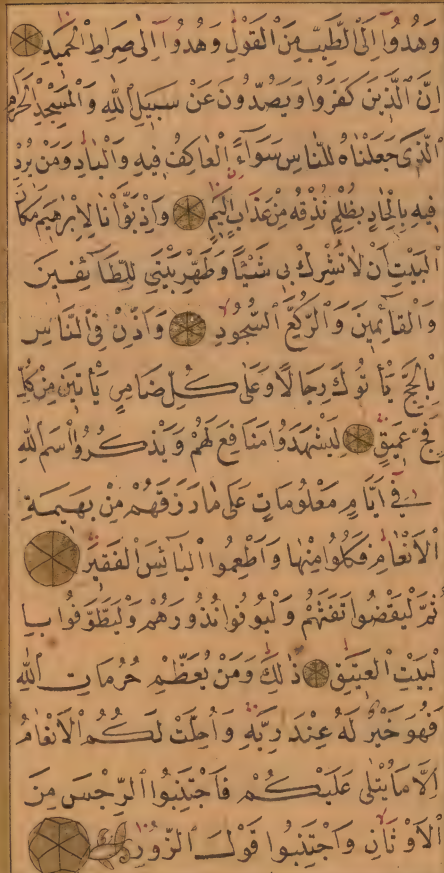 وَهُدُوٓا اِلَى الطَّيِّبِ مِنَ الْقَوْلِ وَهُدُوٓا اِلٰى صِرَاطِ الْحَمِيدِ
اِنَّ الَّذِينَ كَفَرُوا وَيَصُدُّونَ عَنْ سَبِيلِ اللّٰهِ وَالْمَسْجِدِ الْحَرَامِ
الَّذِى جَعَلْنَاهُ لِلنَّاسِ سَوَآءً الْعَاكِفُ فِيهِ وَالْبَادِ وَمَنْ يُرِدْ
فِيهِ بِاِلْحَادٍ بِظُلْمٍ نُذِقْهُ مِنْ عَذَابٍ اَلِيمٍ وَاِذْ بَوَّأْنَا لِاِبْرٰهِيمَ مَكَانَ
الْبَيْتِ اَنْ لَا تُشْرِكْ بِى شَيْئًا وَطَهِّرْ بَيْتِىَ لِلطَّآئِفِينَ
وَالْقَآئِمِينَ وَالرُّكَّعِ السُّجُودِ وَاَذِّنْ فِى النَّاسِ
بِالْحَجِّ يَأْتُوكَ رِجَالًا وَعَلٰى كُلِّ ضَامِرٍ يَأْتِينَ مِنْ كُلِّ
فَجٍّ عَمِيقٍ لِيَشْهَدُوا مَنَافِعَ لَهُمْ وَيَذْكُرُوا اسْمَ اللّٰهِ
فِى اَيَّامٍ مَعْلُومَاتٍ عَلٰى مَا رَزَقَهُمْ مِنْ بَهِيمَةِ
الْاَنْعَامِ فَكُلُوا مِنْهَا وَاَطْعِمُوا الْبَآئِسَ الْفَقِيرَ
ثُمَّ لْيَقْضُوا تَفَثَهُمْ وَلْيُوفُوا نُذُورَهُمْ وَلْيَطَّوَّفُوا بِا
لْبَيْتِ الْعَتِيقِ ذٰلِكَ وَمَنْ يُعَظِّمْ حُرُمَاتِ اللّٰهِ
فَهُوَ خَيْرٌ لَهُ عِنْدَ رَبِّهِ وَاُحِلَّتْ لَكُمُ الْاَنْعَامُ
اِلَّا مَا يُتْلٰى عَلَيْكُمْ فَاجْتَنِبُوا الرِّجْسَ مِنَ
الْاَوْثَانِ وَاجْتَنِبُوا قَوْلَ الزُّورِ